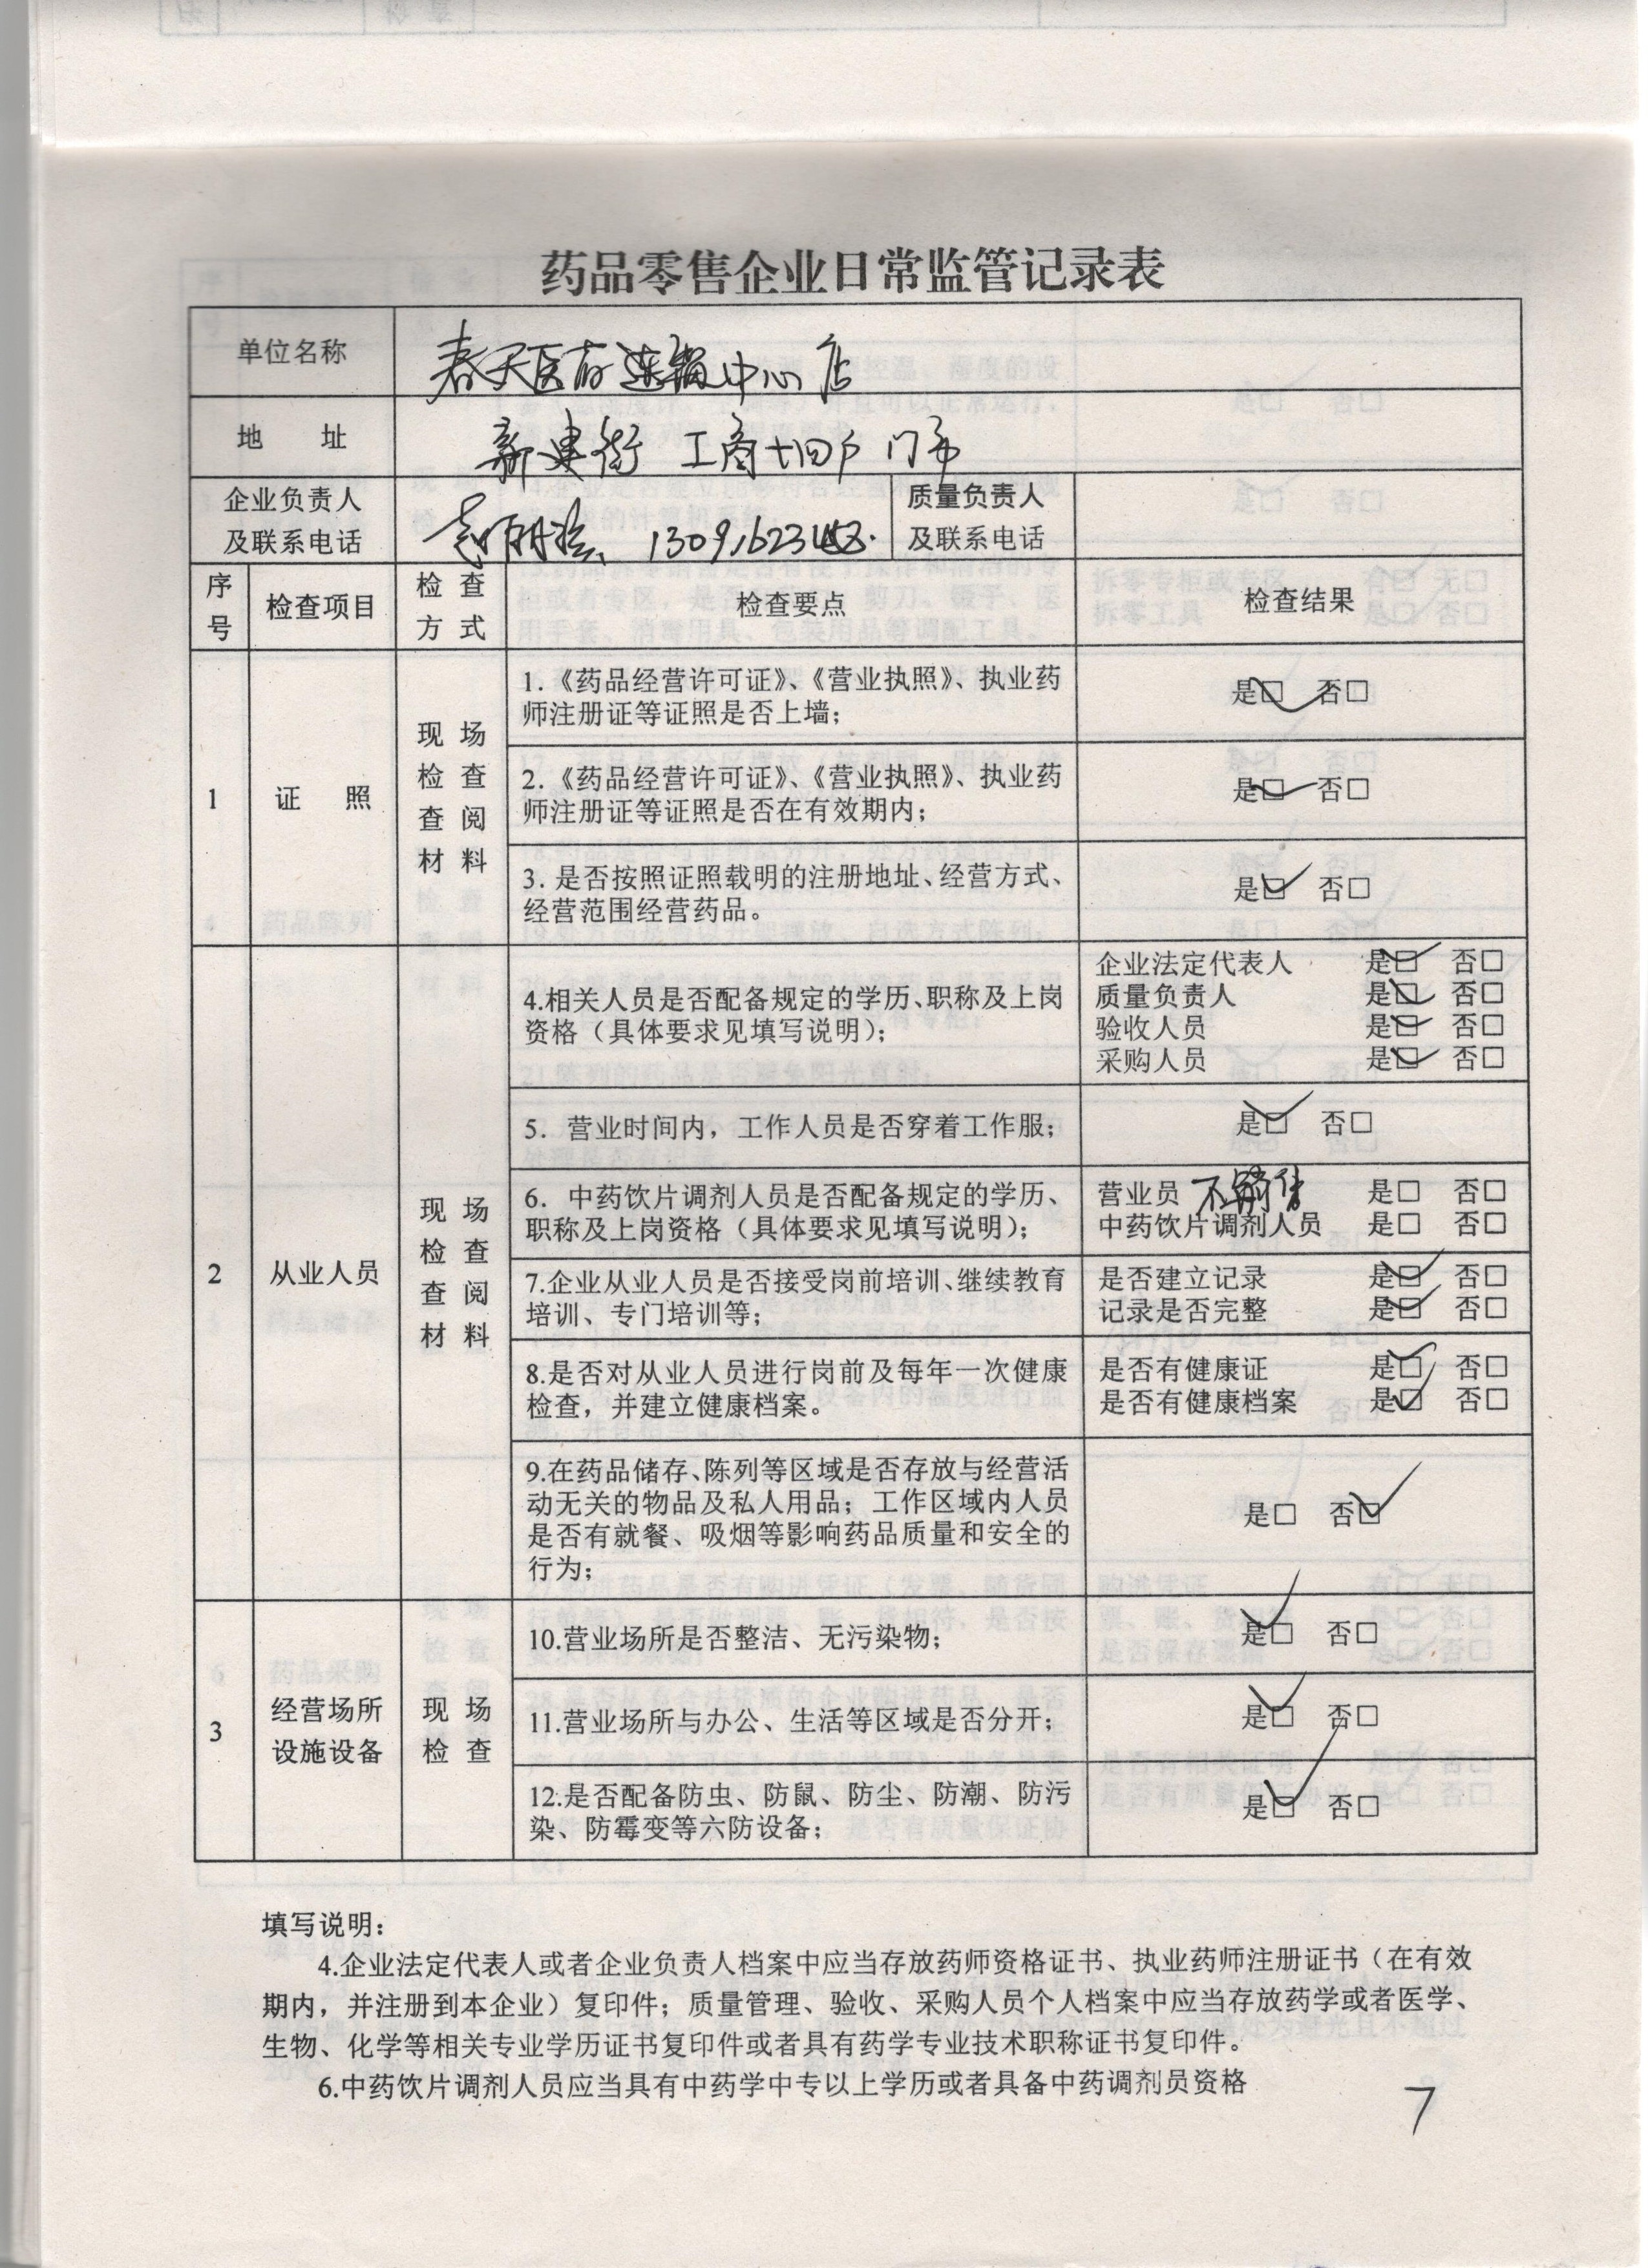 药品零售企业日常监管记录表
单位名称 春天医药连锁中心店
地 址 新建街 工商十四户 门市
企业负责人
及联系电话
质量负责人
及联系电话
序号 检查项目 检查方式 检查要点 检查结果
1 证 照 现场检查查阅材料
1.《药品经营许可证》、《营业执照》、执业药
师注册证等证照是否上墙；
是☑ 否□
2.《药品经营许可证》、《营业执照》、执业药
师注册证等证照是否在有效期内；
是☑ 否□
3. 是否按照证照载明的注册地址、经营方式、
经营范围经营药品。
是☑ 否□
2 从业人员 现场检查查阅材料
4.相关人员是否配备规定的学历、职称及上岗
资格（具体要求见填写说明）；
企业法定代表人 是☑ 否□
质量负责人 是☑ 否□
验收人员 是☑ 否□
采购人员 是☑ 否□
5. 营业时间内，工作人员是否穿着工作服；
是☑ 否□
6. 中药饮片调剂人员是否配备规定的学历、
职称及上岗资格（具体要求见填写说明）；
营业员 是□ 否□
中药饮片调剂人员 是□ 否□
7.企业从业人员是否接受岗前培训、继续教育
培训、专门培训等；
是否建立记录 是☑ 否□
记录是否完整 是☑ 否□
8.是否对从业人员进行岗前及每年一次健康
检查，并建立健康档案。
是否有健康证 是☑ 否□
是否有健康档案 是☑ 否□
9.在药品储存、陈列等区域是否存放与经营活
动无关的物品及私人用品；工作区域内人员
是否有就餐、吸烟等影响药品质量和安全的
行为；
是□ 否☑
3 经营场所设施设备 现场检查
10.营业场所是否整洁、无污染物；
是☑ 否□
11.营业场所与办公、生活等区域是否分开；
是☑ 否□
12.是否配备防虫、防鼠、防尘、防潮、防污
染、防霉变等六防设备；
是☑ 否□
填写说明：
4.企业法定代表人或者企业负责人档案中应当存放药师资格证书、执业药师注册证书（在有效
期内，并注册到本企业）复印件；质量管理、验收、采购人员个人档案中应当存放药学或者医学、
生物、化学等相关专业学历证书复印件或者具有药学专业技术职称证书复印件。
6.中药饮片调剂人员应当具有中药学中专以上学历或者具备中药调剂员资格
7